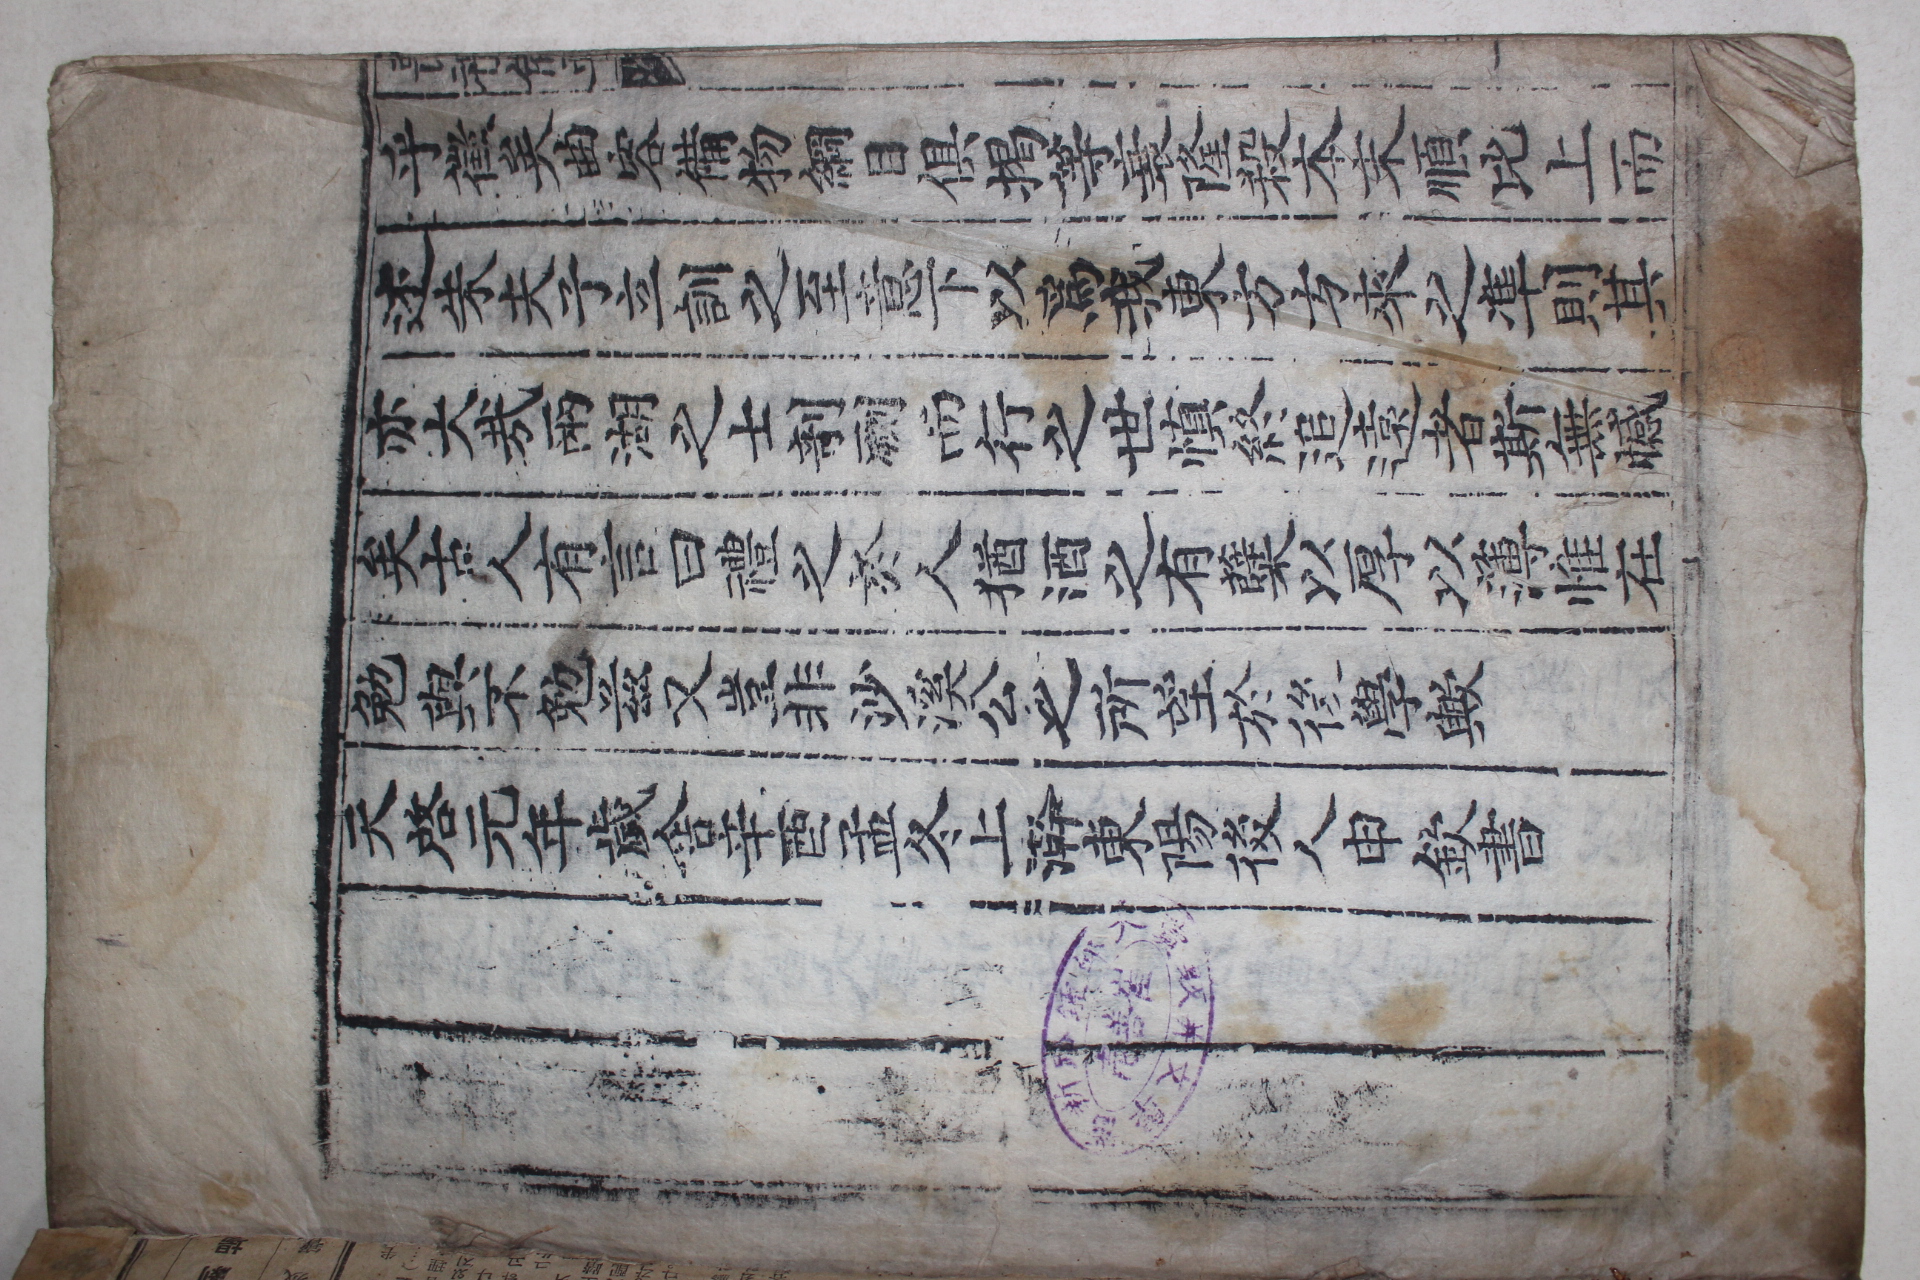 乎徵矣曲容備物綱目俱揭等衰隆殺本末順比上而
述朱夫子立訓之至意下以爲我東方方來之準則其
亦大哉兩湖之士剞劂而行之世愼終追遠者斯無憾
矣古人有言曰禮之於人猶酒之有蘖以厚以薄惟在
勉與不勉兹又豈非沙溪公之所望於後學歟
天啓元年歲舍辛酉孟冬上澣東陽後人申欽書